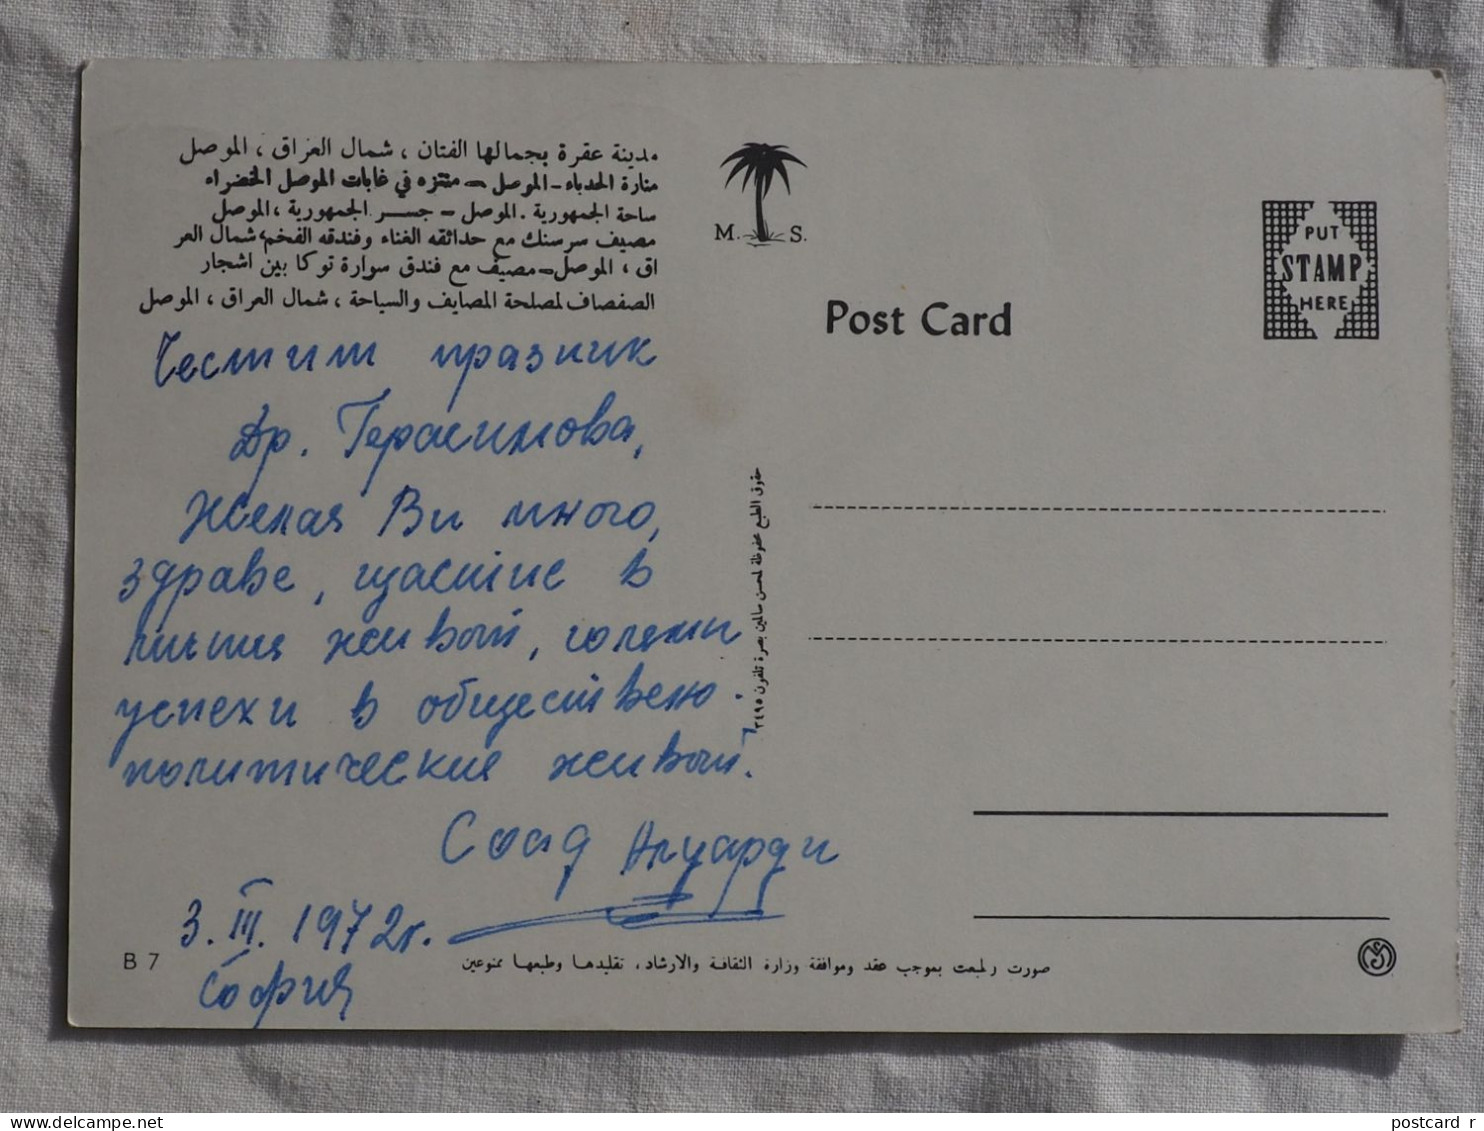 مدينة عقرة بجمالها الفتان ، شمال العراق ، الموصل
منارة الحدباء - الموصل - متنزه في غابات الموصل الخضراء
ساحة الجمهورية . الموصل - جسر الجمهورية ، الموصل
مصيف سرسنك مع حدائقه الغناء وفندقه الفخم ، شمال العر
اق ، الموصل - مصيف مع فندق سوارة توكا بين اشجار
الصفصاف لمصلحة المصايف والسياحة ، شمال العراق ، الموصل
M. S.
PUT
STAMP
HERE
Post Card
Честит празник
Др. Герасимова,
Желая Ви много,
здраве, щастие в
личния живот, големи
успехи в обществено-
политическия живот.
Соад Алуарди
3. III. 1972 г.
София
حقوق الطبع محفوظة لمحسن سالمين بصرة تلفون ٣٤٩٥
B 7
صورت وطبعت بموجب عقد وموافقة وزارة الثقافة والارشاد ، تقليدها وطبعها ممنوعين
postcard r